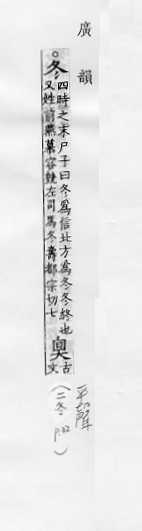 廣韻
冬
四時之末尸子曰冬爲信北方爲冬冬終也
又姓前燕慕容皝左司馬冬壽都宗切七
古文
平聲
(二冬 P.32)